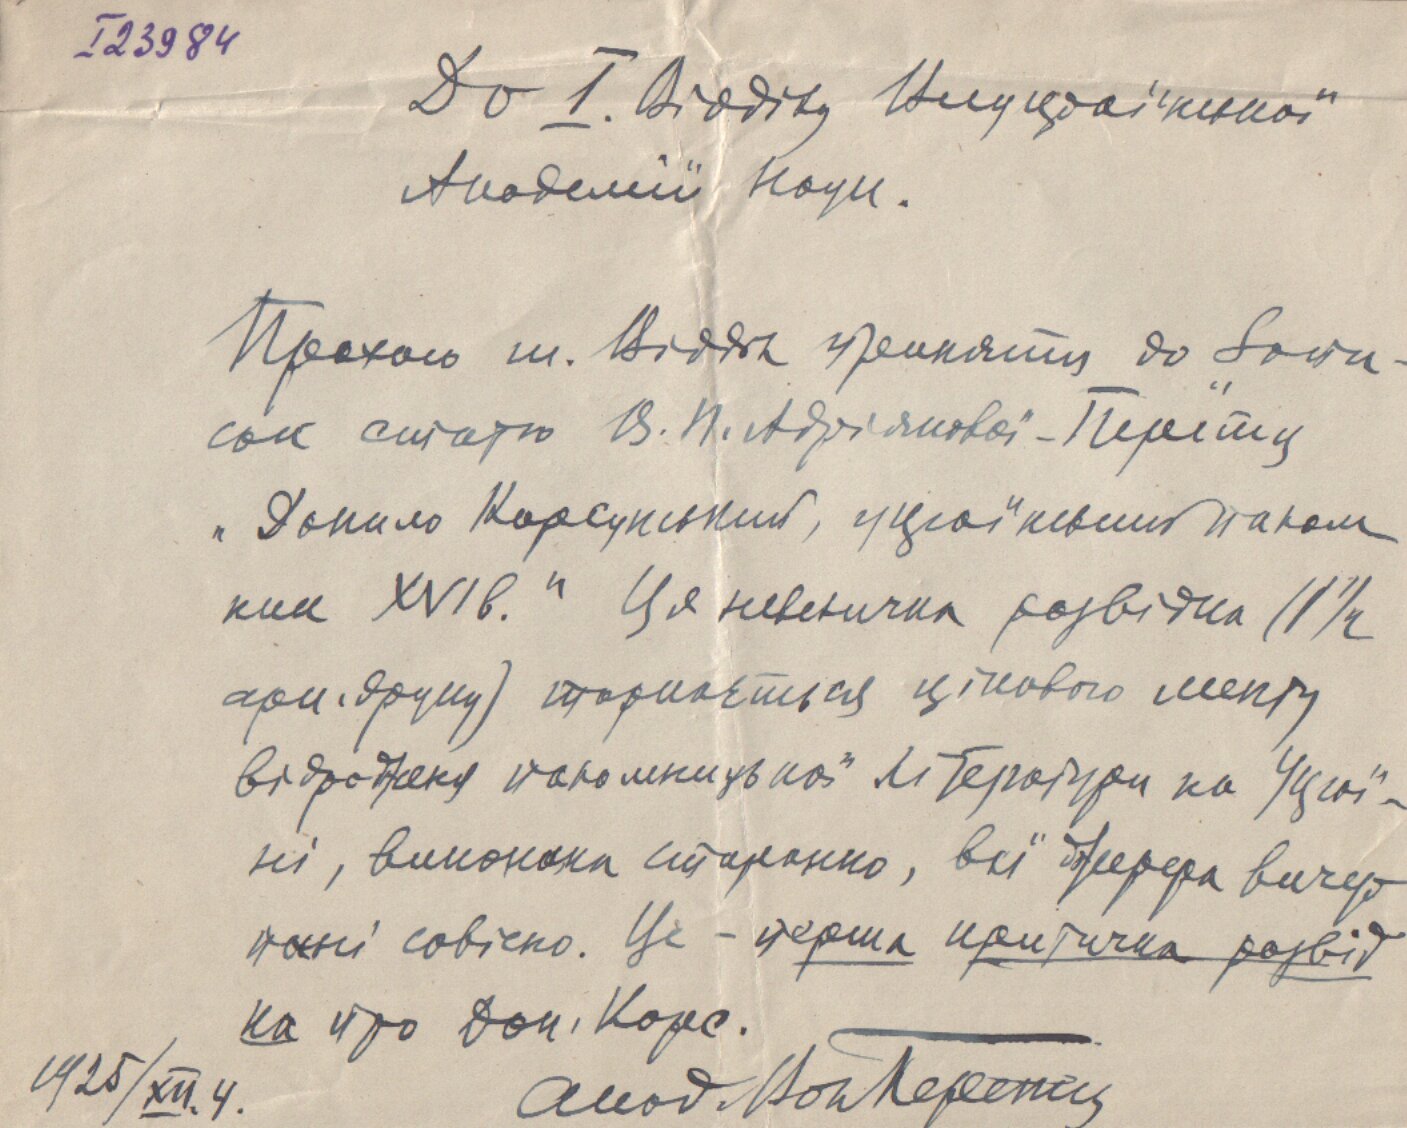 I 23984
До I. Відділу Всеукраїнської
Академії Наук.
Прохаю ш. Відділ прийняти до Запи-
сок статю В. П. Адріянової-Перетц
„Данило Корсунський, український палом
ник XVI в." Ця невеличка розвідка (1 1/2
арк. друку) торкається цікавого менту
відродження паломницької літератури на Украї-
ні, виконана старанно, всі джерела вичер
пані совісно. Це - перша критична розвід
ка про Дан. Корс.
1925/XII. 4.
Акад. Вол Перетц